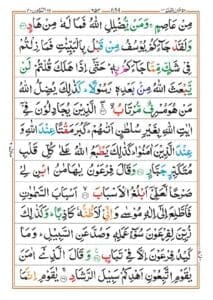 مِنْ عَاصِمٍ ۚ وَمَنْ يُّضْلِلِ اللّٰهُ فَمَا لَهٗ مِنْ هَادٍ
وَلَقَدْ جَآءَكُمْ يُوْسُفُ مِنْ قَبْلُ بِالْبَيِّنٰتِ فَمَا زِلْتُمْ
فِيْ شَكٍّ مِّمَّا جَآءَكُمْ بِهٖ ؕ حَتّٰۤى اِذَا هَلَكَ قُلْتُمْ لَنْ
يَّبْعَثَ اللّٰهُ مِنْۢ بَعْدِهٖ رَسُوْلًا ؕ كَذٰلِكَ يُضِلُّ اللّٰهُ
مَنْ هُوَ مُسْرِفٌ مُّرْتَابُ الَّذِيْنَ يُجَادِلُوْنَ فِيْۤ
اٰيٰتِ اللّٰهِ بِغَيْرِ سُلْطٰنٍ اَتٰىهُمْ ؕ كَبُرَ مَقْتًا عِنْدَ اللّٰهِ وَ
عِنْدَ الَّذِيْنَ اٰمَنُوْا ؕ كَذٰلِكَ يَطْبَعُ اللّٰهُ عَلٰى كُلِّ قَلْبِ
مُتَكَبِّرٍ جَبَّارٍ وَقَالَ فِرْعَوْنُ يٰهَامٰنُ ابْنِ لِيْ
صَرْحًا لَّعَلِّيْۤ اَبْلُغُ الْاَسْبَابَ اَسْبَابَ السَّمٰوٰتِ
فَاَطَّلِعَ اِلٰۤى اِلٰهِ مُوْسٰى وَاِنِّيْ لَاَظُنُّهٗ كَاذِبًا ؕ وَكَذٰلِكَ
زُيِّنَ لِفِرْعَوْنَ سُوْٓءُ عَمَلِهٖ وَصُدَّ عَنِ السَّبِيْلِ ؕ وَمَا
كَيْدُ فِرْعَوْنَ اِلَّا فِيْ تَبَابٍ وَقَالَ الَّذِيْۤ اٰمَنَ
يٰقَوْمِ اتَّبِعُوْنِ اَهْدِكُمْ سَبِيْلَ الرَّشَادِ يٰقَوْمِ اِنَّمَا